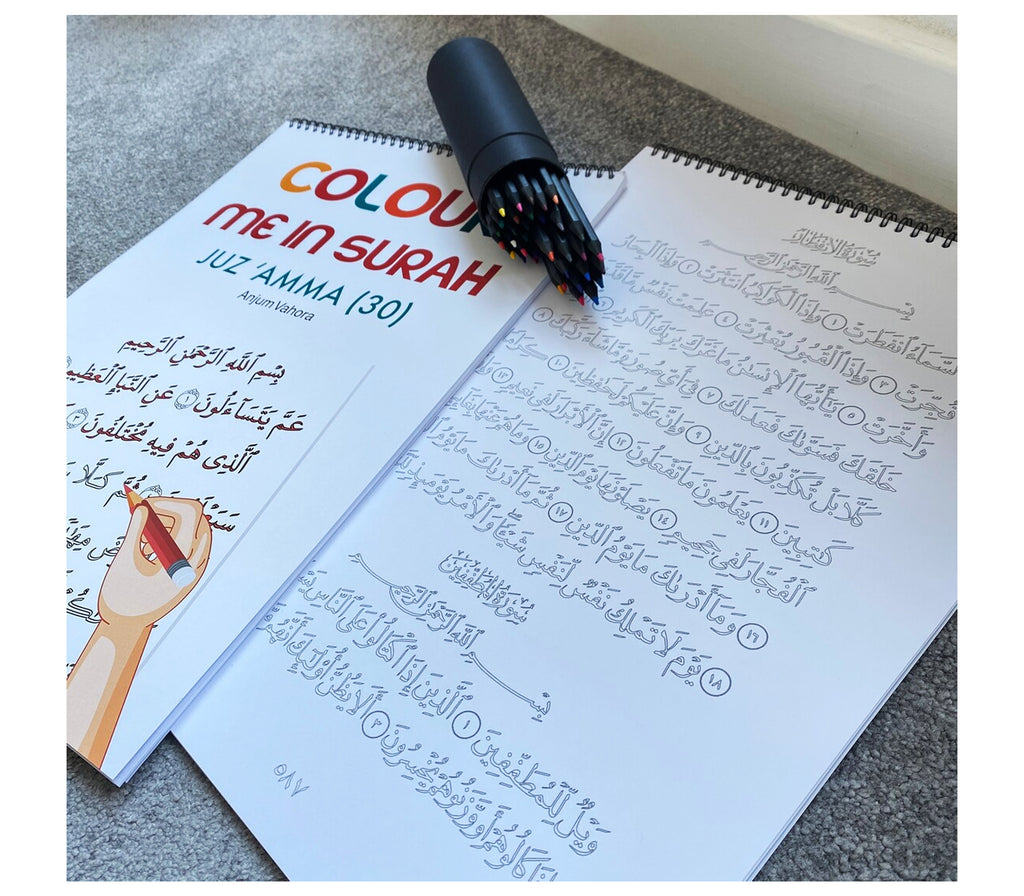 COLOU
ME IN SURAH
JUZ 'AMMA (30)
Anjum Vahora
بِسْمِ ٱللَّهِ ٱلرَّحْمَٰنِ ٱلرَّحِيمِ
عَمَّ يَتَسَآءَلُونَ ١ عَنِ ٱلنَّبَإِ ٱلْعَظِيمِ
ٱلَّذِى هُمْ فِيهِ مُخْتَلِفُونَ ٣
ثُمَّ كَلَّا
سُورَةُ الانفِطَارِ
بِسْمِ ٱللَّهِ ٱلرَّحْمَٰنِ ٱلرَّحِيمِ
ٱلسَّمَآءُ ٱنفَطَرَتْ ١ وَإِذَا ٱلْكَوَاكِبُ ٱنتَثَرَتْ ٢ وَإِذَا ٱلْبِحَارُ
فُجِّرَتْ ٣ وَإِذَا ٱلْقُبُورُ بُعْثِرَتْ ٤ عَلِمَتْ نَفْسٌ مَّا
وَأَخَّرَتْ ٥ يَٰٓأَيُّهَا ٱلْإِنسَٰنُ مَا غَرَّكَ بِرَبِّكَ ٱلْكَرِيمِ ٦
خَلَقَكَ فَسَوَّىٰكَ فَعَدَلَكَ ٧ فِىٓ أَىِّ صُورَةٍ مَّا شَآءَ رَكَّبَكَ ٨
كَلَّا بَلْ تُكَذِّبُونَ بِٱلدِّينِ ٩ وَإِنَّ عَلَيْكُمْ لَحَٰفِظِينَ ١٠ كِرَامًا
كَٰتِبِينَ ١١ يَعْلَمُونَ مَا تَفْعَلُونَ ١٢ إِنَّ ٱلْأَبْرَارَ لَفِى نَعِيمٍ ١٣
ٱلْفُجَّارَ لَفِى جَحِيمٍ ١٤ يَصْلَوْنَهَا يَوْمَ ٱلدِّينِ ١٥ وَمَا هُمْ عَنْهَا
١٦ وَمَآ أَدْرَىٰكَ مَا يَوْمُ ٱلدِّينِ ١٧ ثُمَّ مَآ أَدْرَىٰكَ مَا يَوْمُ
١٨ يَوْمَ لَا تَمْلِكُ نَفْسٌ لِّنَفْسٍ شَيْـًٔا وَٱلْأَمْرُ يَوْمَئِذٍ
سُورَةُ المُطَفِّفِينَ
بِسْمِ ٱللَّهِ ٱلرَّحْمَٰنِ ٱلرَّحِيمِ
وَيْلٌ لِّلْمُطَفِّفِينَ ١ ٱلَّذِينَ إِذَا ٱكْتَالُوا۟ عَلَى ٱلنَّاسِ
كَالُوهُمْ أَو وَّزَنُوهُمْ يُخْسِرُونَ ٣ أَلَا يَظُنُّ أُو۟لَٰٓئِكَ أَنَّهُم
٥٨٧